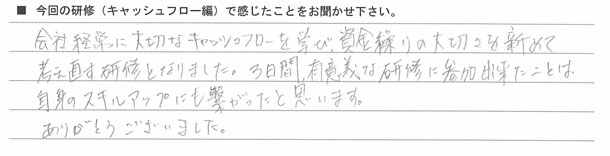 ■ 今回の研修（キャッシュフロー編）で感じたことをお聞かせ下さい。
会社経営に大切なキャッシュフローを学び、資金繰りの大切さを新めて
考え直す研修となりました。3日間、有意義な研修に参加出来たことは
自身のスキルアップにも繋がったと思います。
ありがとうございました。